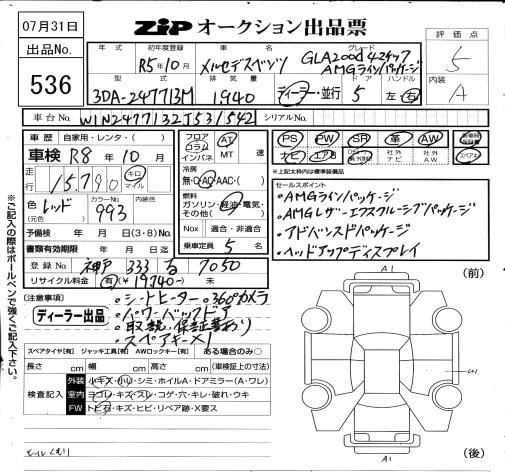 07月31日
ZIP オークション出品票
評価点
5
内装
A
出品No.
536
年式
初年度登録
R5年10月
車名
メルセデスベンツ
グレード
GLA200d 4マチック
AMGラインパッケージ
型式
3DA-247713M
排気量
1,940
ディーラー・並行
ドア
5
ハンドル
左・右
車台No.
W1N2477132J531542
シリアルNo.
車歴 自家用・レンタ・( )
車検 R8年10月
走行
15,790
キロ
マイル
色 レッド
(元色)
カラーNo.
993
内装色
予備検 年 月 日(3・8)
書類有効期限 年 月 日迄
登録No. 神戸 333 る 7050
リサイクル料金 有(¥19,740-)
フロア
コラム
インパネ
AT
MT
速
冷房
無・O・AC・AAC・( )
燃料
ガソリン・軽油・電気・
その他( )
Nox 適合・非適合
乗車定員 5 名
PS PW SR 革 AW
ナビ エアB
社外
ナビ
社外
AW
スペアキー
※上記太枠内は標準装備品
セールスポイント
・AMGラインパッケージ
・AMGレザーエクスクルーシブパッケージ
・アドバンスドパッケージ
・ヘッドアップディスプレイ
(注意事項)
ディーラー出品
・シートヒーター ・360°カメラ
・パワーバックドア
・取説・保証書有り
・スペアキー×1
スペアタイヤ[有] ジャッキ工具[有] AWロックキー[有] ある場合のみ○
長さ cm 幅 cm 高さ cm (車検証上の寸法)
検査記入
外装 小キズ・小凹・シミ・ホイルA・ドアミラー(A・ワレ)
室内 ヨゴレ・キズ・スレ・コゲ・穴・キレ・破れ・ウキ
FW トビ石・キズ・ヒビ・リペア跡・X要ス
モール くもり
※ご記入の際はボールペンで強くご記入下さい。
(前)
A1
A1
(後)